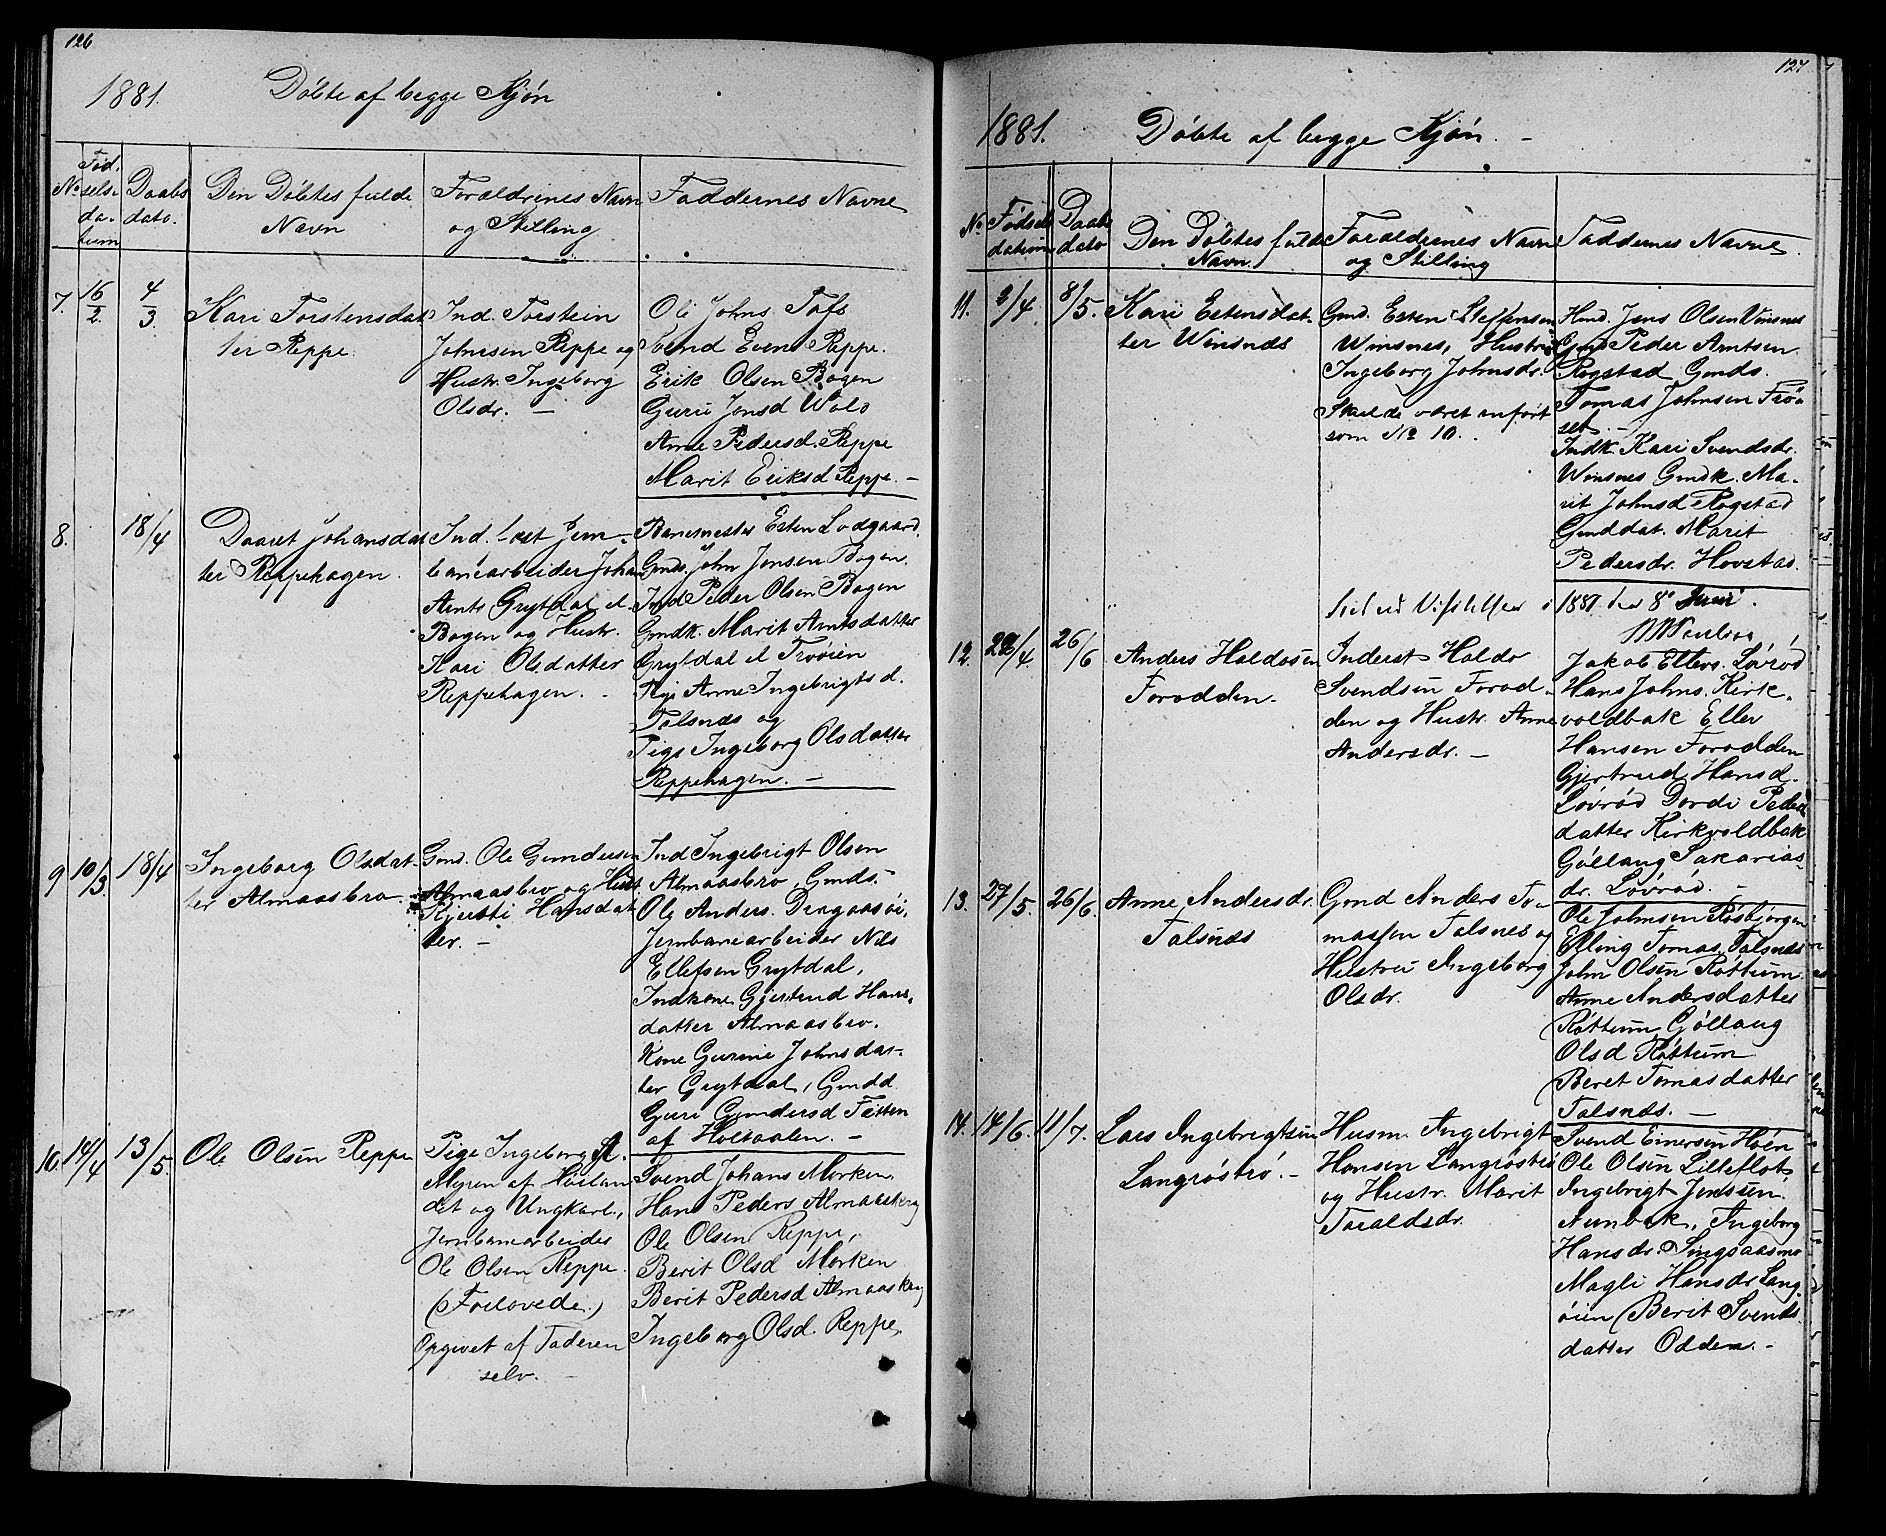 126
1881. Döbte af begge Kjön
No
Fød-
sels-
da-
tum
Daabs
dato.
Den Döbtes fulde
Navn
Forældrenes Navn
og Stilling
Faddernes Navne
7. 16/2. 4/3
Kari Torstensdat
ter Reppe.
Ind. Torstein
Johnsen Reppe og
Hustr. Ingeborg
Olsdr. —
Ole Johns
Svend Evens Reppe.
Erik Olsen Bogen
Guru Jonsd Wold
Anne Pedersd. Reppe
Marit Eriksd Reppe. —
8. 18/4
Daaret Johansdat
ter Reppehagen.
Ind. Jern-
banearbeider Johan
Arnts Grytdal el.
Bogen og Hustr.
Kari Olsdatter
Reppehagen. —
Banemester Esten Lodgaard.
Gmds. John Jonsen Bogen.
Ind Peder Olsen Bogen
Gmdk. Marit Arntsdatter
Grytdal el Trøøien
Pige Anne Ingebrigtsd.
Talsnæs og
Pige Ingeborg Olsdatter
Reppehagen. —
9 10/3. 18/4
Ingeborg Olsdat-
ter Almaasbro.
Gmd. Ole Gundersen
Almaasbro og Hust.
Kjersti Hansdat
ter. —
Ind Ingebrigt Olsen
Almaasbro, Gmds.
Ole Anders. Dragaasøi,
Jernbanearbeider Nils
Ellefsen Grytdal,
Indkone Gjertrud Hans-
datter Almaasbro.
Kone Gurine Johnsdat-
ter Grytdal, Gmdd.
Guri Gundersd Fætten
af Holtaalen. —
10. 14/4 13/5
Ole Olsen Reppe
Pige Ingeborg A.
Myren af
det og Ungkarl,
Jernbanearbeider
Ole Olsen Reppe.
(Forlovede.)
Opgivet af Faderen
selv. —
Svend Johans Morken.
Hans Peders Almaaskrog
Ole Olsen Reppe,
Berit Olsd Morken
Berit Pedersd Almaaskrog
Ingeborg Olsd. Reppe,
127
1881. Döbte af begge Kjön. —
No.
Fødsels
datum
Daabs
dato
Den Döbtes fulde
Navn.
Forældrenes Navne
og Stilling
Faddernes Navne.
11. 2/4. 8/5.
Kari Estensdat-
ter Winsnæs
Gmd. Esten Steffensen
Winsnes, Hustru
Ingeborg Johnsdr.
Skulde været anført
som No 10.
Hmd. Jens Olsen Vinsnes
Gmd Peder Arntsen
Rogstad Gmds.
Tomas Johnsen Frö-
set. —
Indk. Kari Svendsdr.
Winsnes Gmdk. Ma-
rit Johnsd Rogstad
Gmddat. Marit
Pedersdr. Hovstad.
1881 den 8de Juni.
12. 22/4 26/6
Anders Haldosen
Forodden.
Inderst Haldo
Svendsen Forod-
den og Hustr. Anne
Andersdr. —
Jakob Ellevs. Lövröd
Hans Johns. Kirk-
voldbak Eller
Hansen Forodden
Gjertrud Hansd.
Lövröd Dordi Peders
datter Kirkvoldbak
Göllaug Sakarias-
dr. Lövröd. —
13. 27/5. 26/6.
Anne Andersdr.
Talsnæs
Gmd Anders To-
massen Talsnes og
Hustru Ingeborg
Olsdr.
Ole Johnsen Rösbjørgen
Elling Tomas. Talsnæs
John Olsen Röttum
Anne Andersdatter
Röttum Göllaug
Olsd Röttum
Beret Tomasdatter
Talsnæs. —
14. 14/6. 11/7.
Lars Ingebrigtsen
Langröströ. —
Husm. Ingebrigt
Hansen Langröströ
og Hustr. Marit
Toraldsdr.
Svend Einersen Hoen
Ole Olsen Lilleflot
Ingebrigt Jenssen
Aunbak, Ingeborg
Hansdr. Singsaasmo
Magli Hansdr Lang-
öien Berit Svends
datter Odden. —